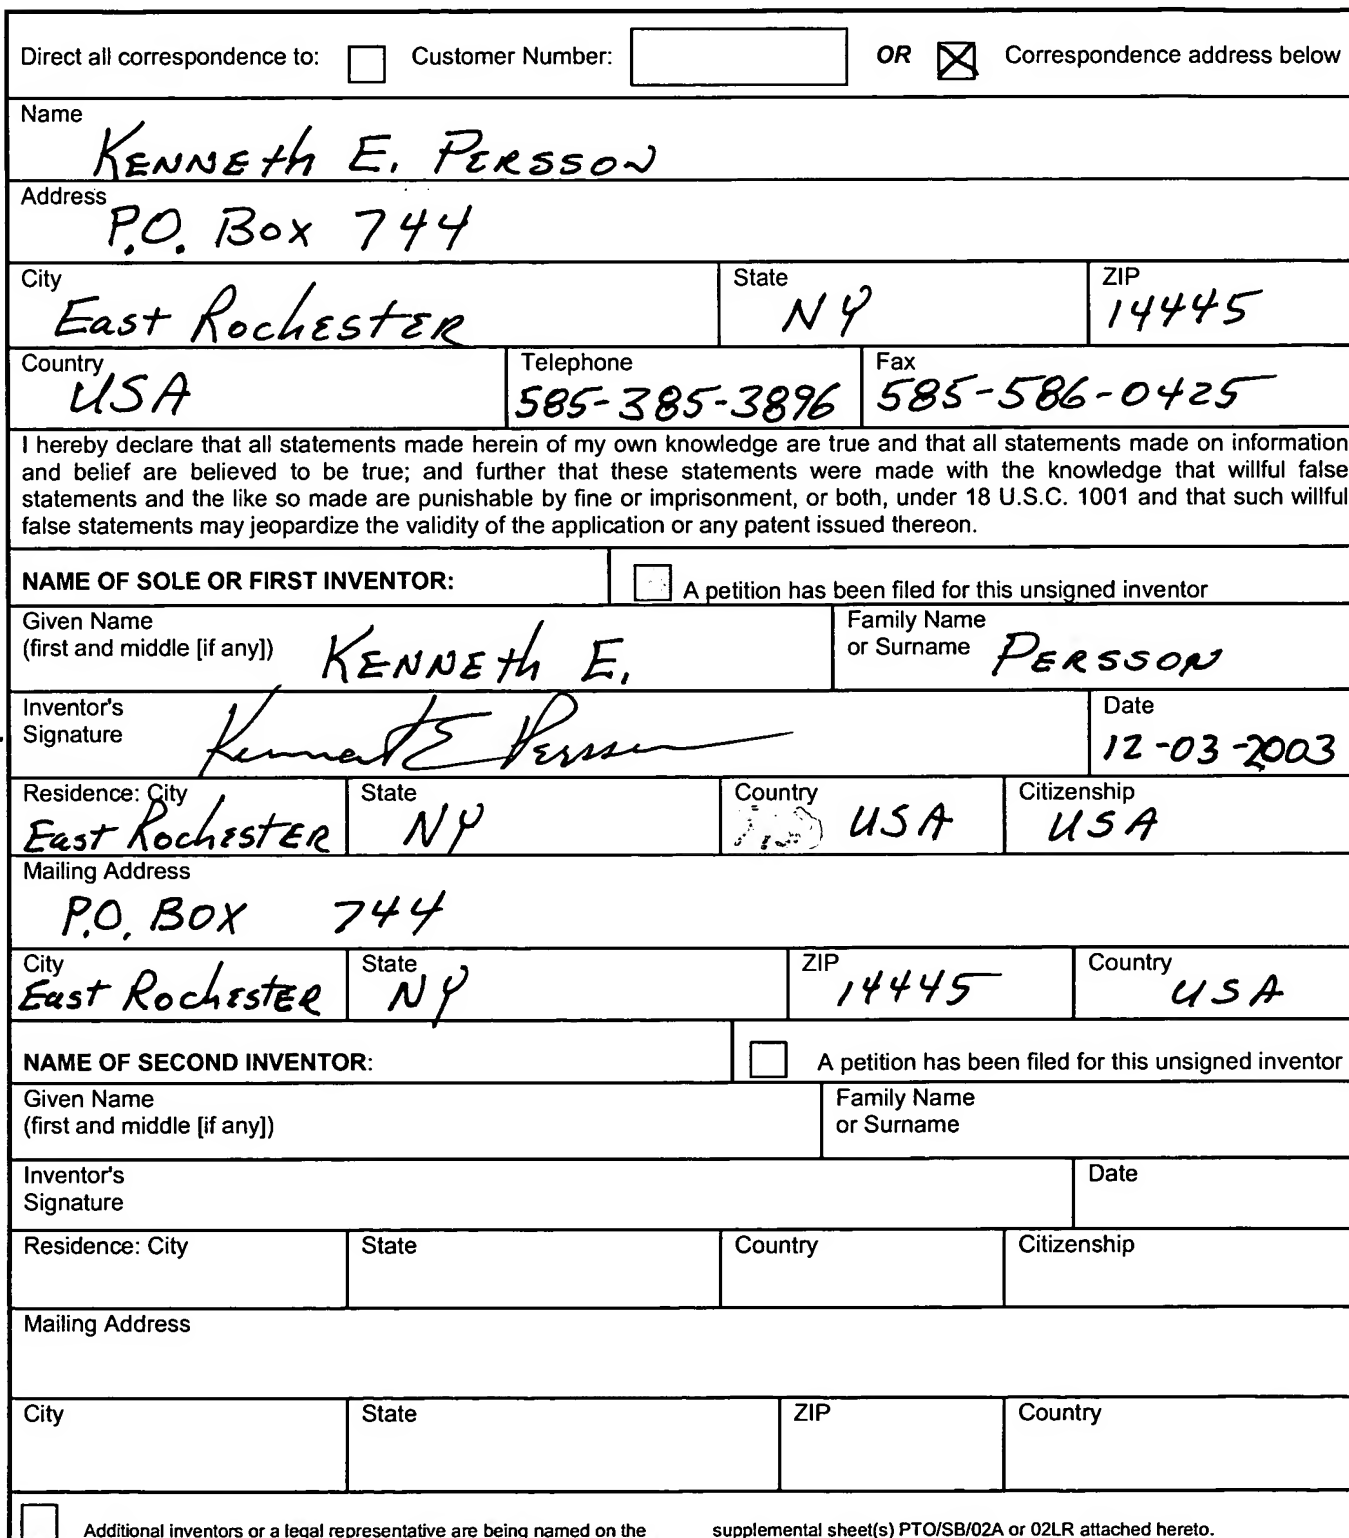 Direct all correspondence to: Customer Number: OR Correspondence address below
Name
KENNEth E. PERSSON
Address
P.O. Box 744
City State ZIP
East RochESTER NY 14445
Country Telephone Fax
USA 585-385-3896 585-586-0425
I hereby declare that all statements made herein of my own knowledge are true and that all statements made on information
and belief are believed to be true; and further that these statements were made with the knowledge that willful false
statements and the like so made are punishable by fine or imprisonment, or both, under 18 U.S.C. 1001 and that such willful
false statements may jeopardize the validity of the application or any patent issued thereon.
NAME OF SOLE OR FIRST INVENTOR: A petition has been filed for this unsigned inventor
Given Name Family Name
(first and middle [if any]) KENNEth E. or Surname PERSSON
Inventor's Date
Signature Kenneth E Persson 12-03-2003
Residence: City State Country Citizenship
East RochESTER NY USA USA
Mailing Address
P.O. BOX 744
City State ZIP Country
East RochESTER NY 14445 USA
NAME OF SECOND INVENTOR: A petition has been filed for this unsigned inventor
Given Name Family Name
(first and middle [if any]) or Surname
Inventor's Date
Signature
Residence: City State Country Citizenship
Mailing Address
City State ZIP Country
Additional inventors or a legal representative are being named on the supplemental sheet(s) PTO/SB/02A or 02LR attached hereto.